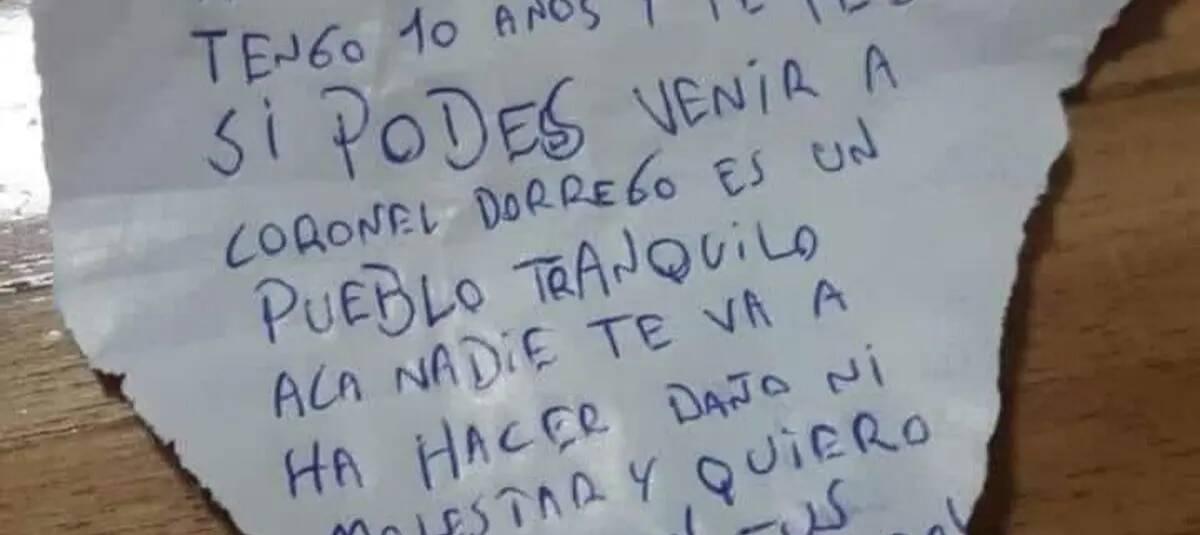 TENGO 10 AÑOS Y TE
SI PODES VENIR A
CORONEL DORREGO ES UN
PUEBLO TRANQUILO
ACA NADIE TE VA A
HA HACER DAÑO NI
MOLESTAR Y QUIERO